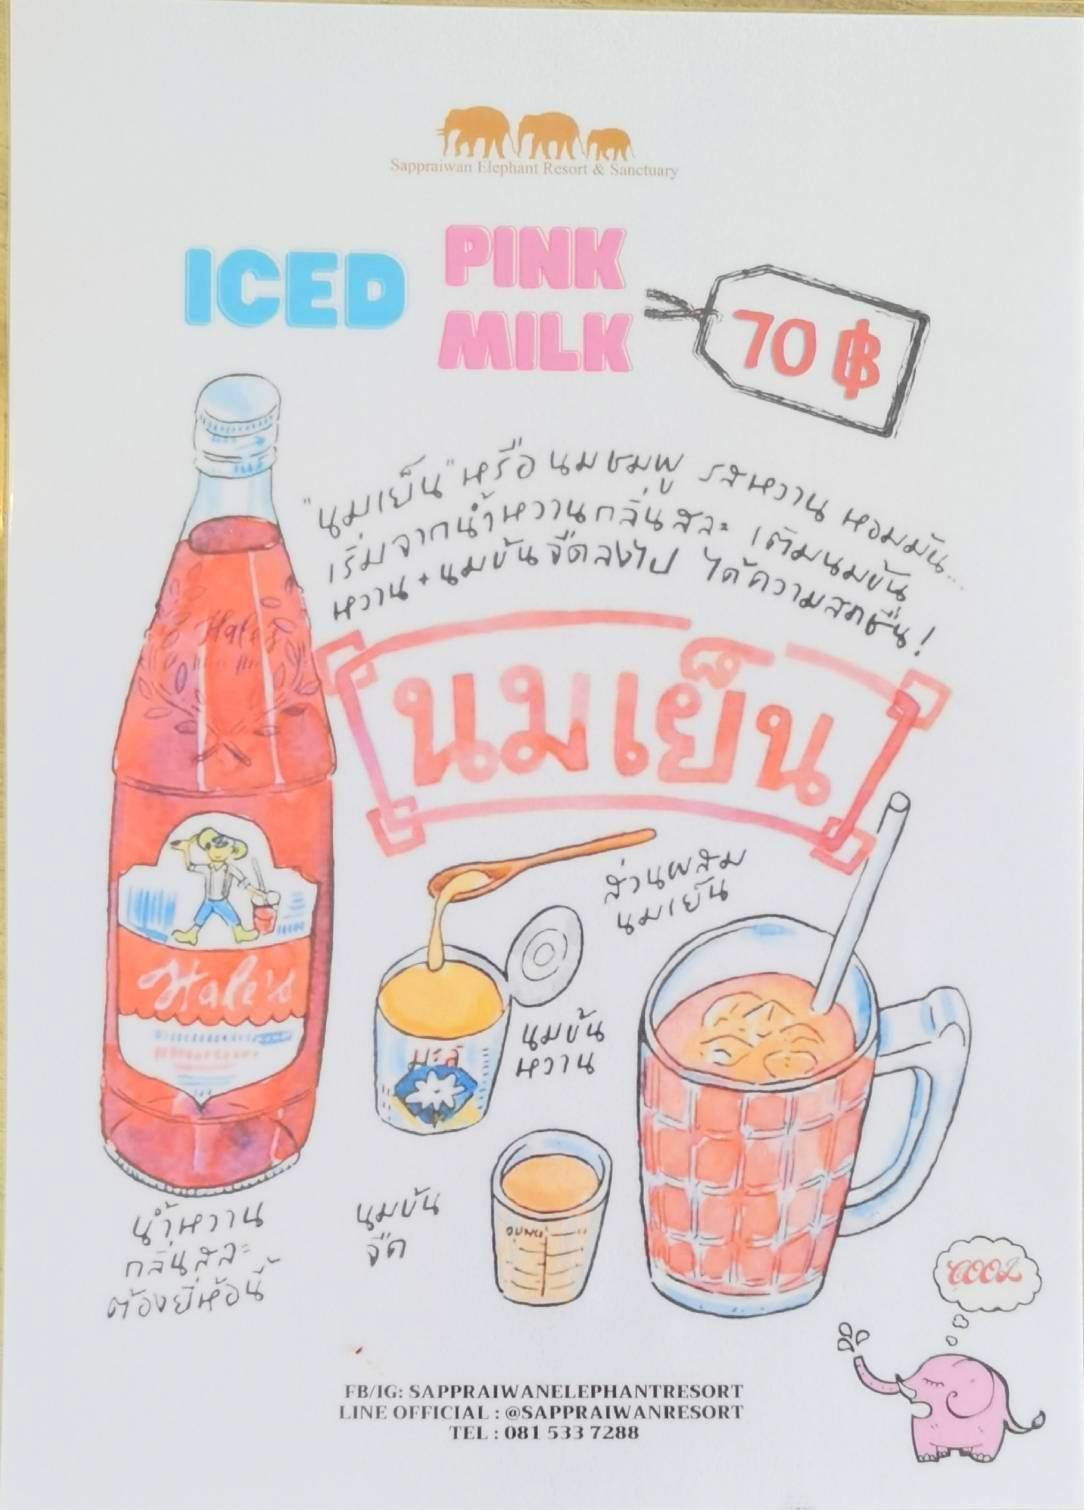 Sappraiwan Elephant Resort & Sanctuary
ICED
PINK
MILK
70 ฿
"นมเย็น" หรือ นมชมพู รสหวาน หอมมัน...
เริ่มจากน้ำหวานกลิ่นสละ เติมนมข้น
หวาน + นมข้นจืดลงไป ได้ความสดชื่น!
นมเย็น
Hale's
ส่วนผสม
นมเย็น
Hale's
นมข้น
หวาน
มะลิ
น้ำหวาน
กลิ่นสละ
ต้องยี่ห้อนี้
นมข้น
จืด
COOL
FB/IG: SAPPRAIWANELEPHANTRESORT
LINE OFFICIAL : @SAPPRAIWANRESORT
TEL : 081 533 7288